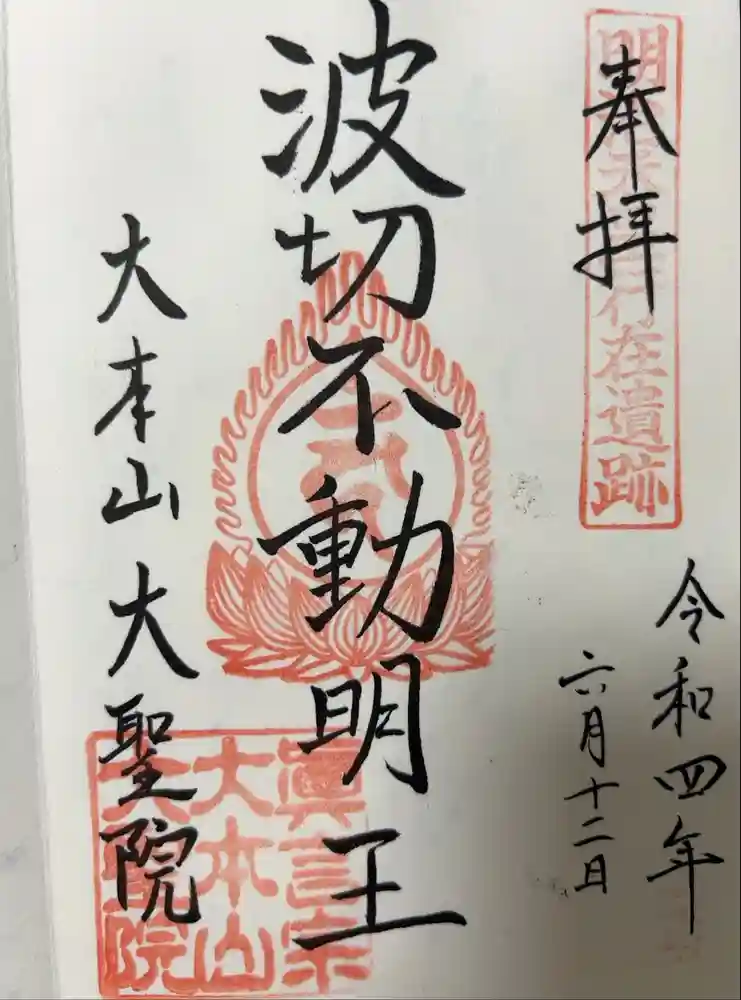 奉拝
明 行在遺跡
令和四年
六月十二日
波切不動明王
大本山大聖院
眞言宗
大本山
大聖院